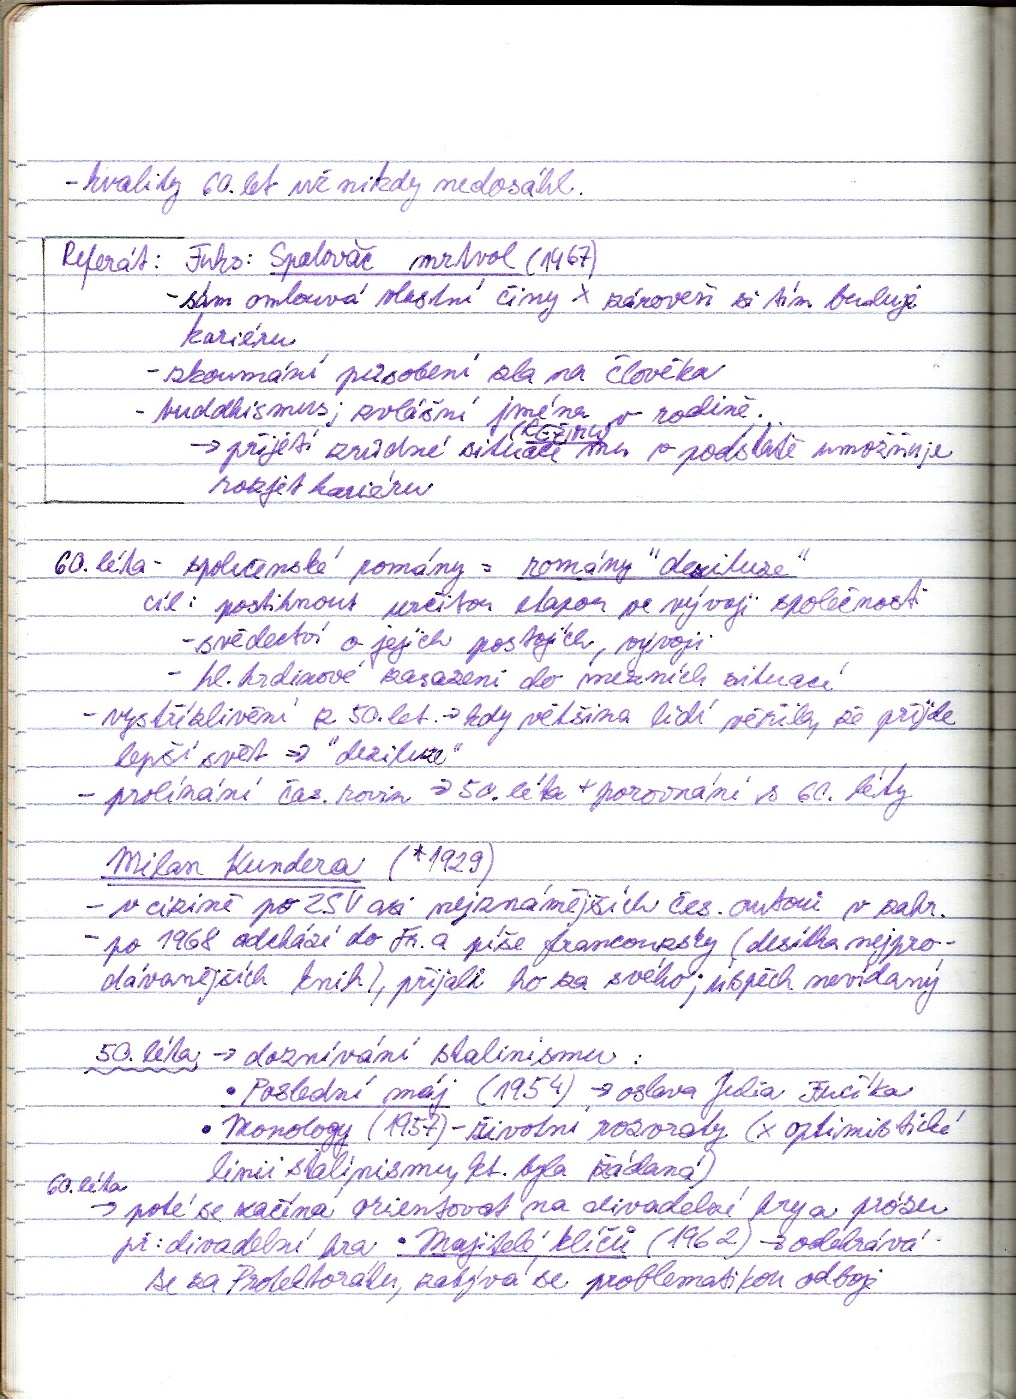 - kvality 60. let už nikdy nedosáhl.
Referát: Fuks: Spalovač mrtvol (1967)
- sám omlouvá vlastní činy x zároveň si tím buduje
kariéru
- zkoumání působení zla na člověka
- buddhismus; zvláštní jména v rodině..
(REŽIMU)
→ přijetí zrůdné situace mu v podstatě umožňuje
rozjet kariéru
60. léta - společenské romány = romány "deziluze"
cíl: postihnout určitou etapou ve vývoji společnosti
- svědectví o jejich postojích, vývoji
- hl. hrdinové zasazeni do mezních situací
- vystřízlivění z 50. let → kdy většina lidí věřila, že přijde
lepší svět ⇒ "deziluze"
- prolínání čas. rovin → 50. léta + porovnání s 60. léty
Milan Kundera (*1929)
- v cizině po 2SV asi nejznámějších čes. autorů v zahr.
- po 1968 odchází do Fr. a píše francouzsky (desítka nejpro-
dávanějších knih), přijali ho za svého; úspěch nevídaný
50. léta → doznívání stalinismu:
• Poslední máj (1954) → oslava Julia Fučíka
• Monology (1957) - životní rozvraty (x optimistické
linii stalinismu, kt. byla žádaná)
60. léta
→ poté se začíná orientovat na divadelní hry a prózu
př: divadelní hra • Majitelé klíčů (1962) → odehrává
se za Protektorátu, zabývá se problematikou odboje